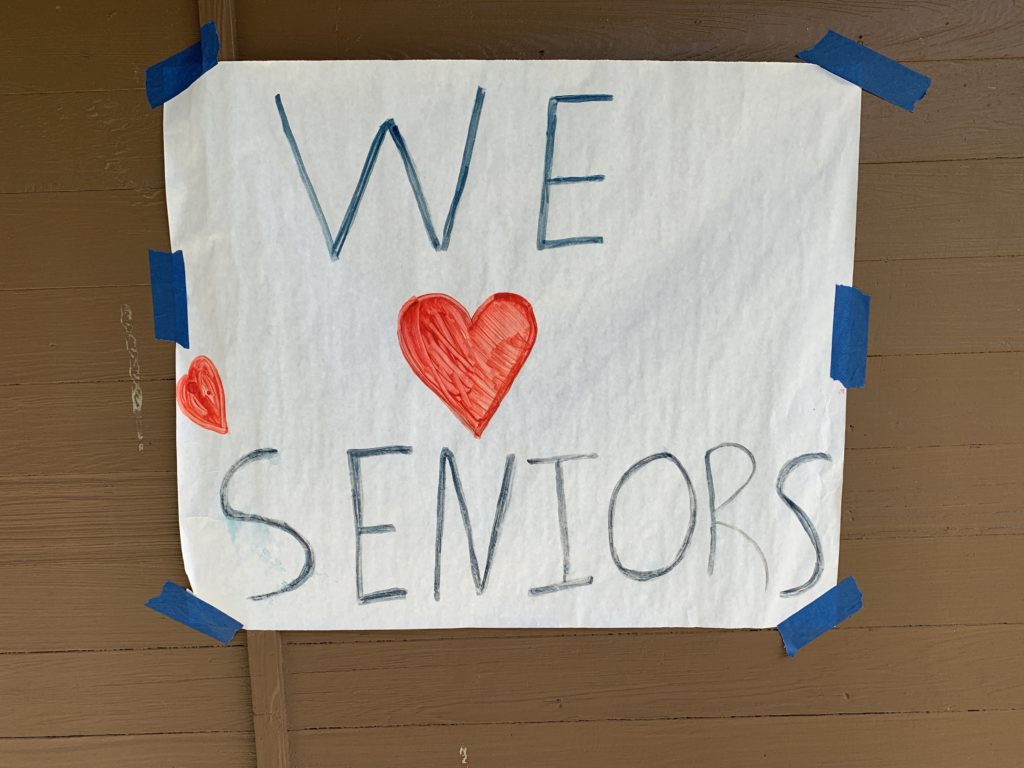 WE
❤
SENIORS